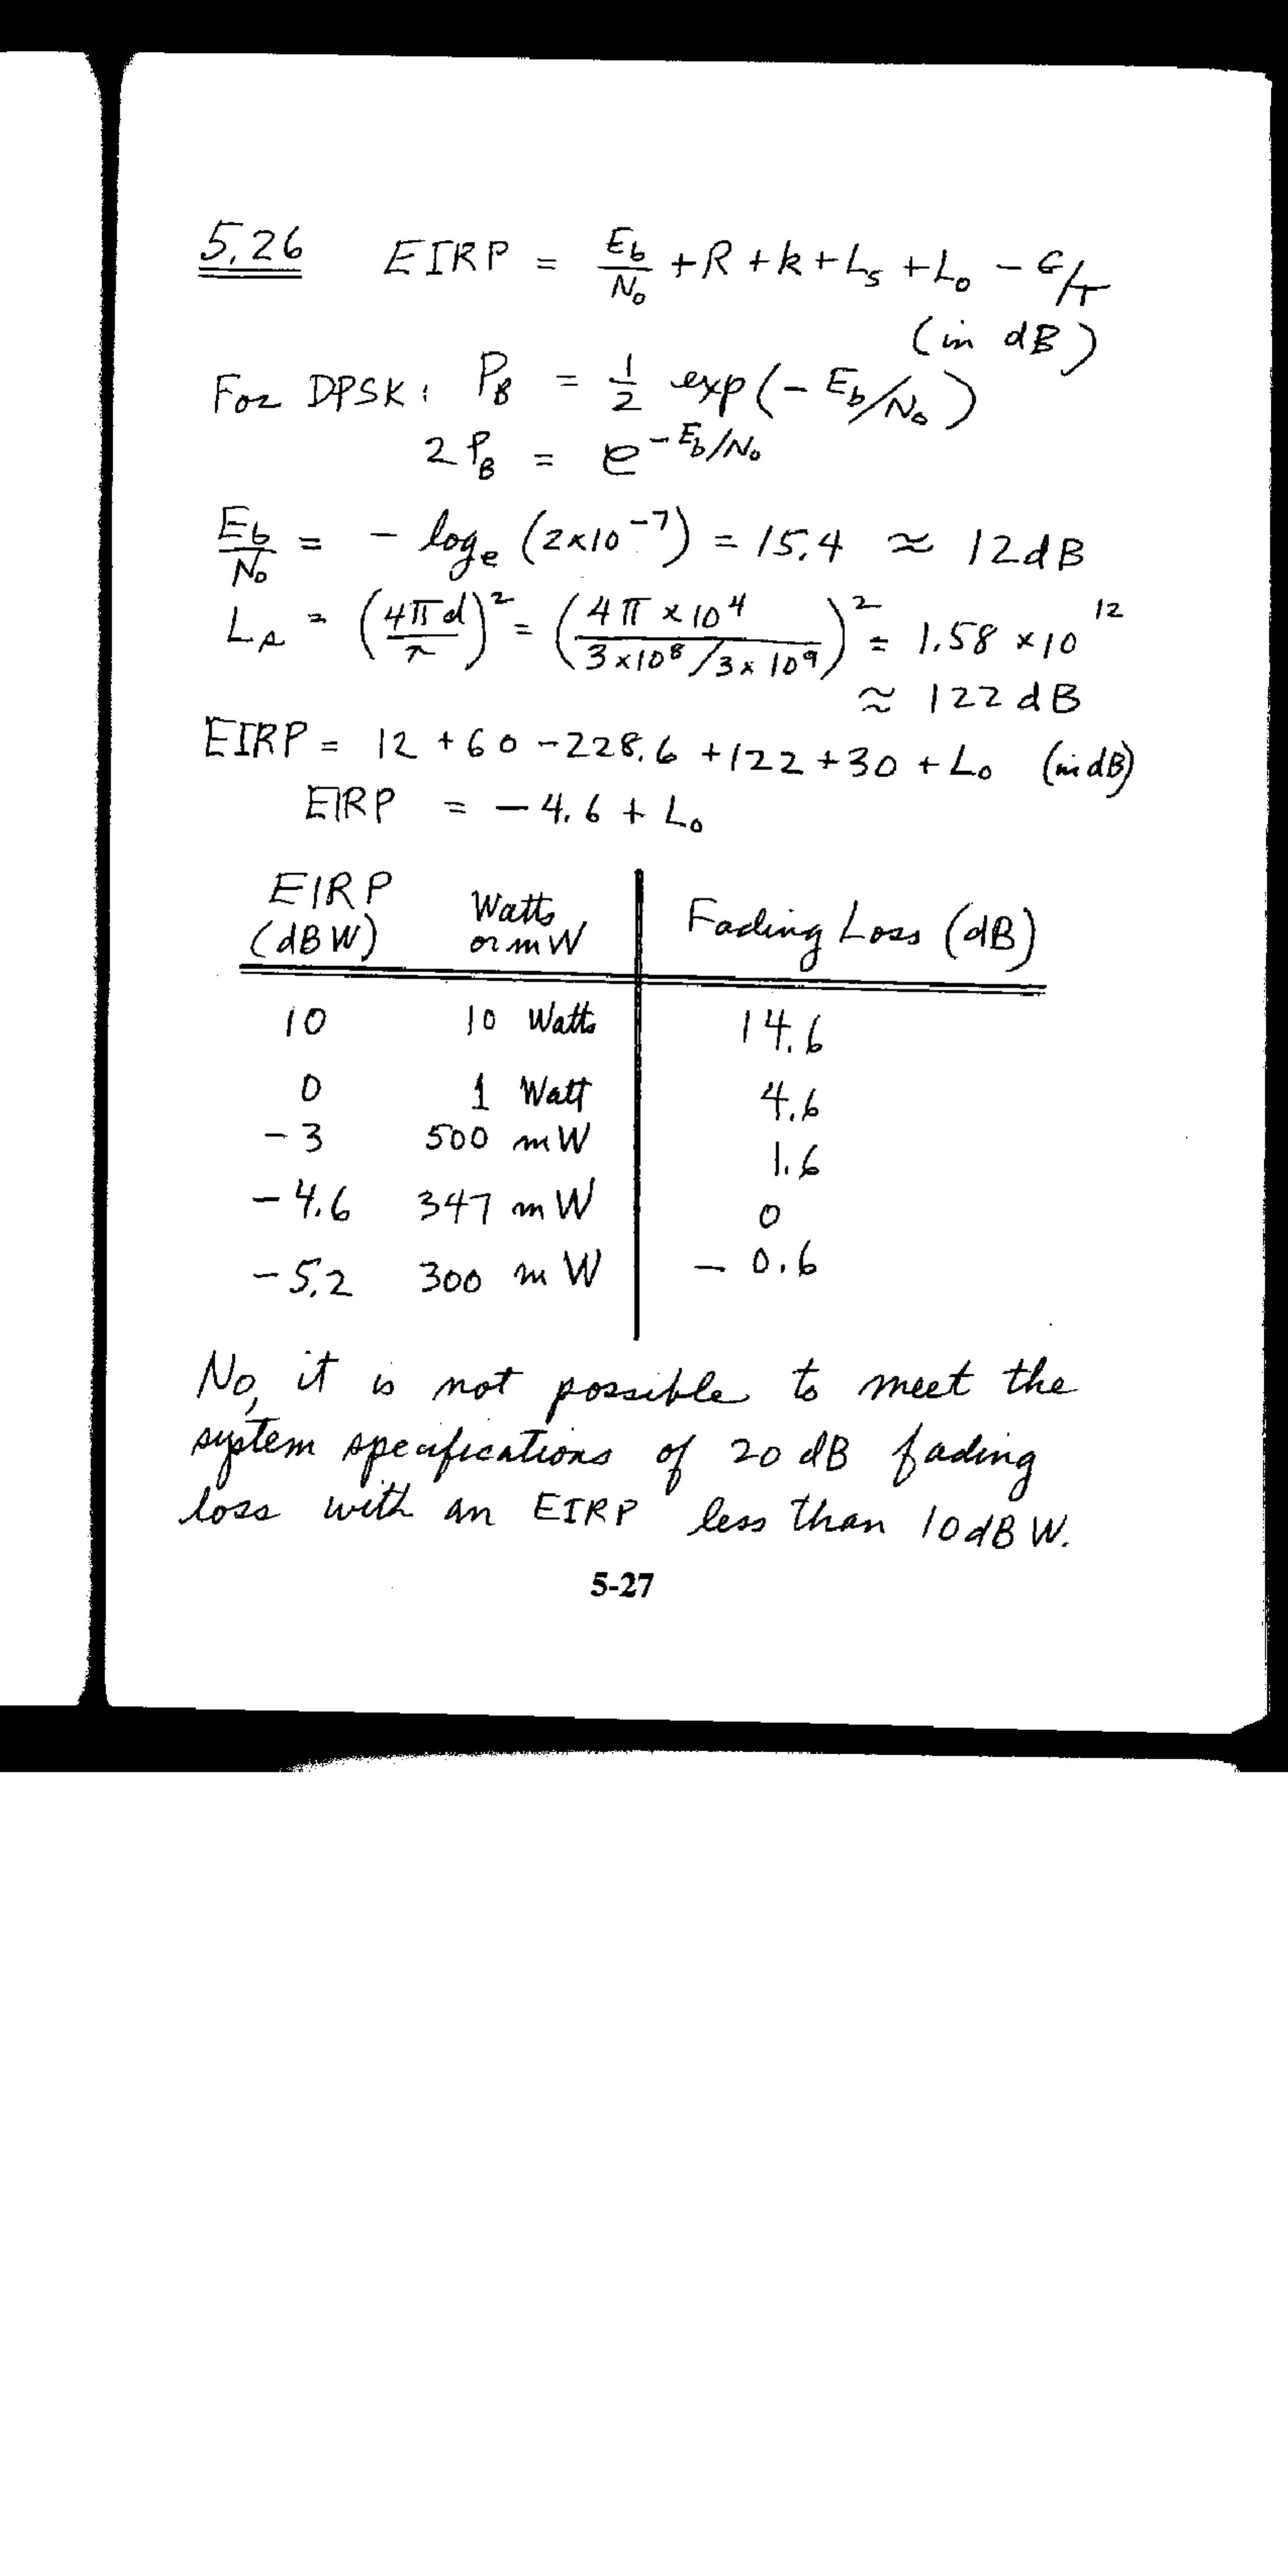 5.26 EIRP = Eb/No + R + k + Ls + Lo - G/T
(in dB)
For DPSK: PB = 1/2 exp(- Eb/No)
2 PB = e^-Eb/No
Eb/No = - loge (2×10^-7) = 15.4 ≈ 12dB
Ls = (4πd/λ)^2 = (4π × 10^4 / 3×10^8/3×10^9)^2 = 1.58 × 10^12
≈ 122 dB
EIRP = 12 + 60 - 228.6 + 122 + 30 + Lo (in dB)
EIRP = - 4.6 + Lo
EIRP (dBW) Watts or mW Fading Loss (dB)
10 10 Watts 14.6
0 1 Watt 4.6
- 3 500 mW 1.6
- 4.6 347 mW 0
- 5.2 300 mW - 0.6
No, it is not possible to meet the
system specifications of 20 dB fading
loss with an EIRP less than 10 dBW.
5-27